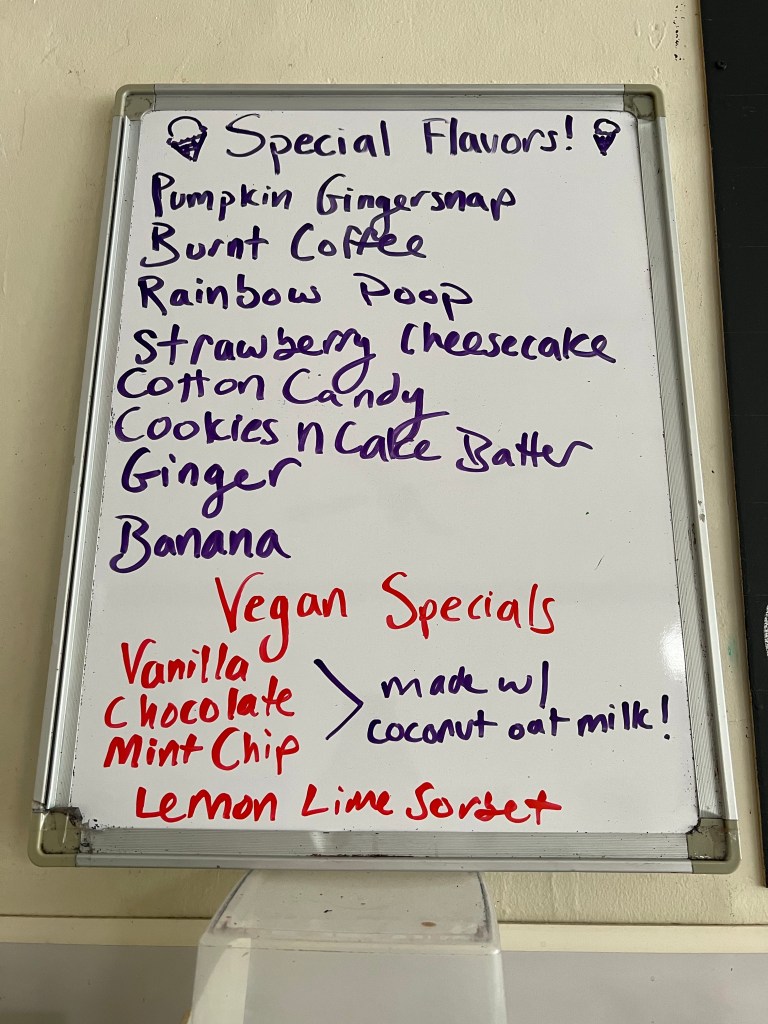 Special Flavors!
Pumpkin Gingersnap
Burnt Coffee
Rainbow Poop
Strawberry Cheesecake
Cotton Candy
Cookies n Cake Batter
Ginger
Banana
Vegan Specials
Vanilla
Chocolate
Mint Chip
made w/
coconut oat milk!
Lemon Lime Sorbet